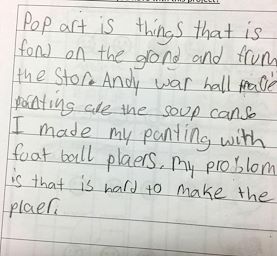 have with this project?
Pop art is things that is
fond on the grond and frum
the store Andy war hall made
painting cale the soup canse
I made my panting with
foat ball plaers. my problom
is that is hard to make the
plaer.